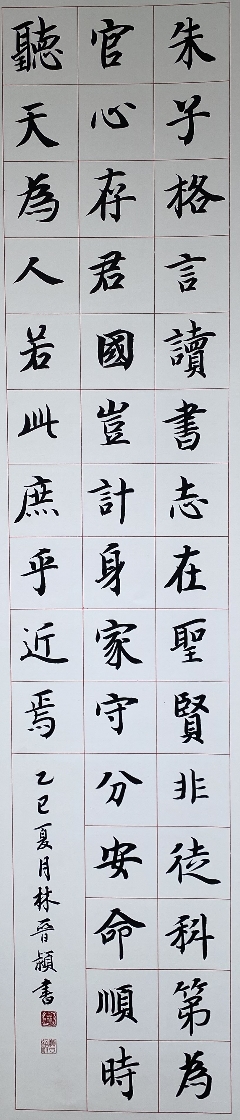 朱子格言讀書志在聖賢非徒科第為
官心存君國豈計身家守分安命順時
聽天為人若此庶乎近焉
乙巳夏月林晉頴書